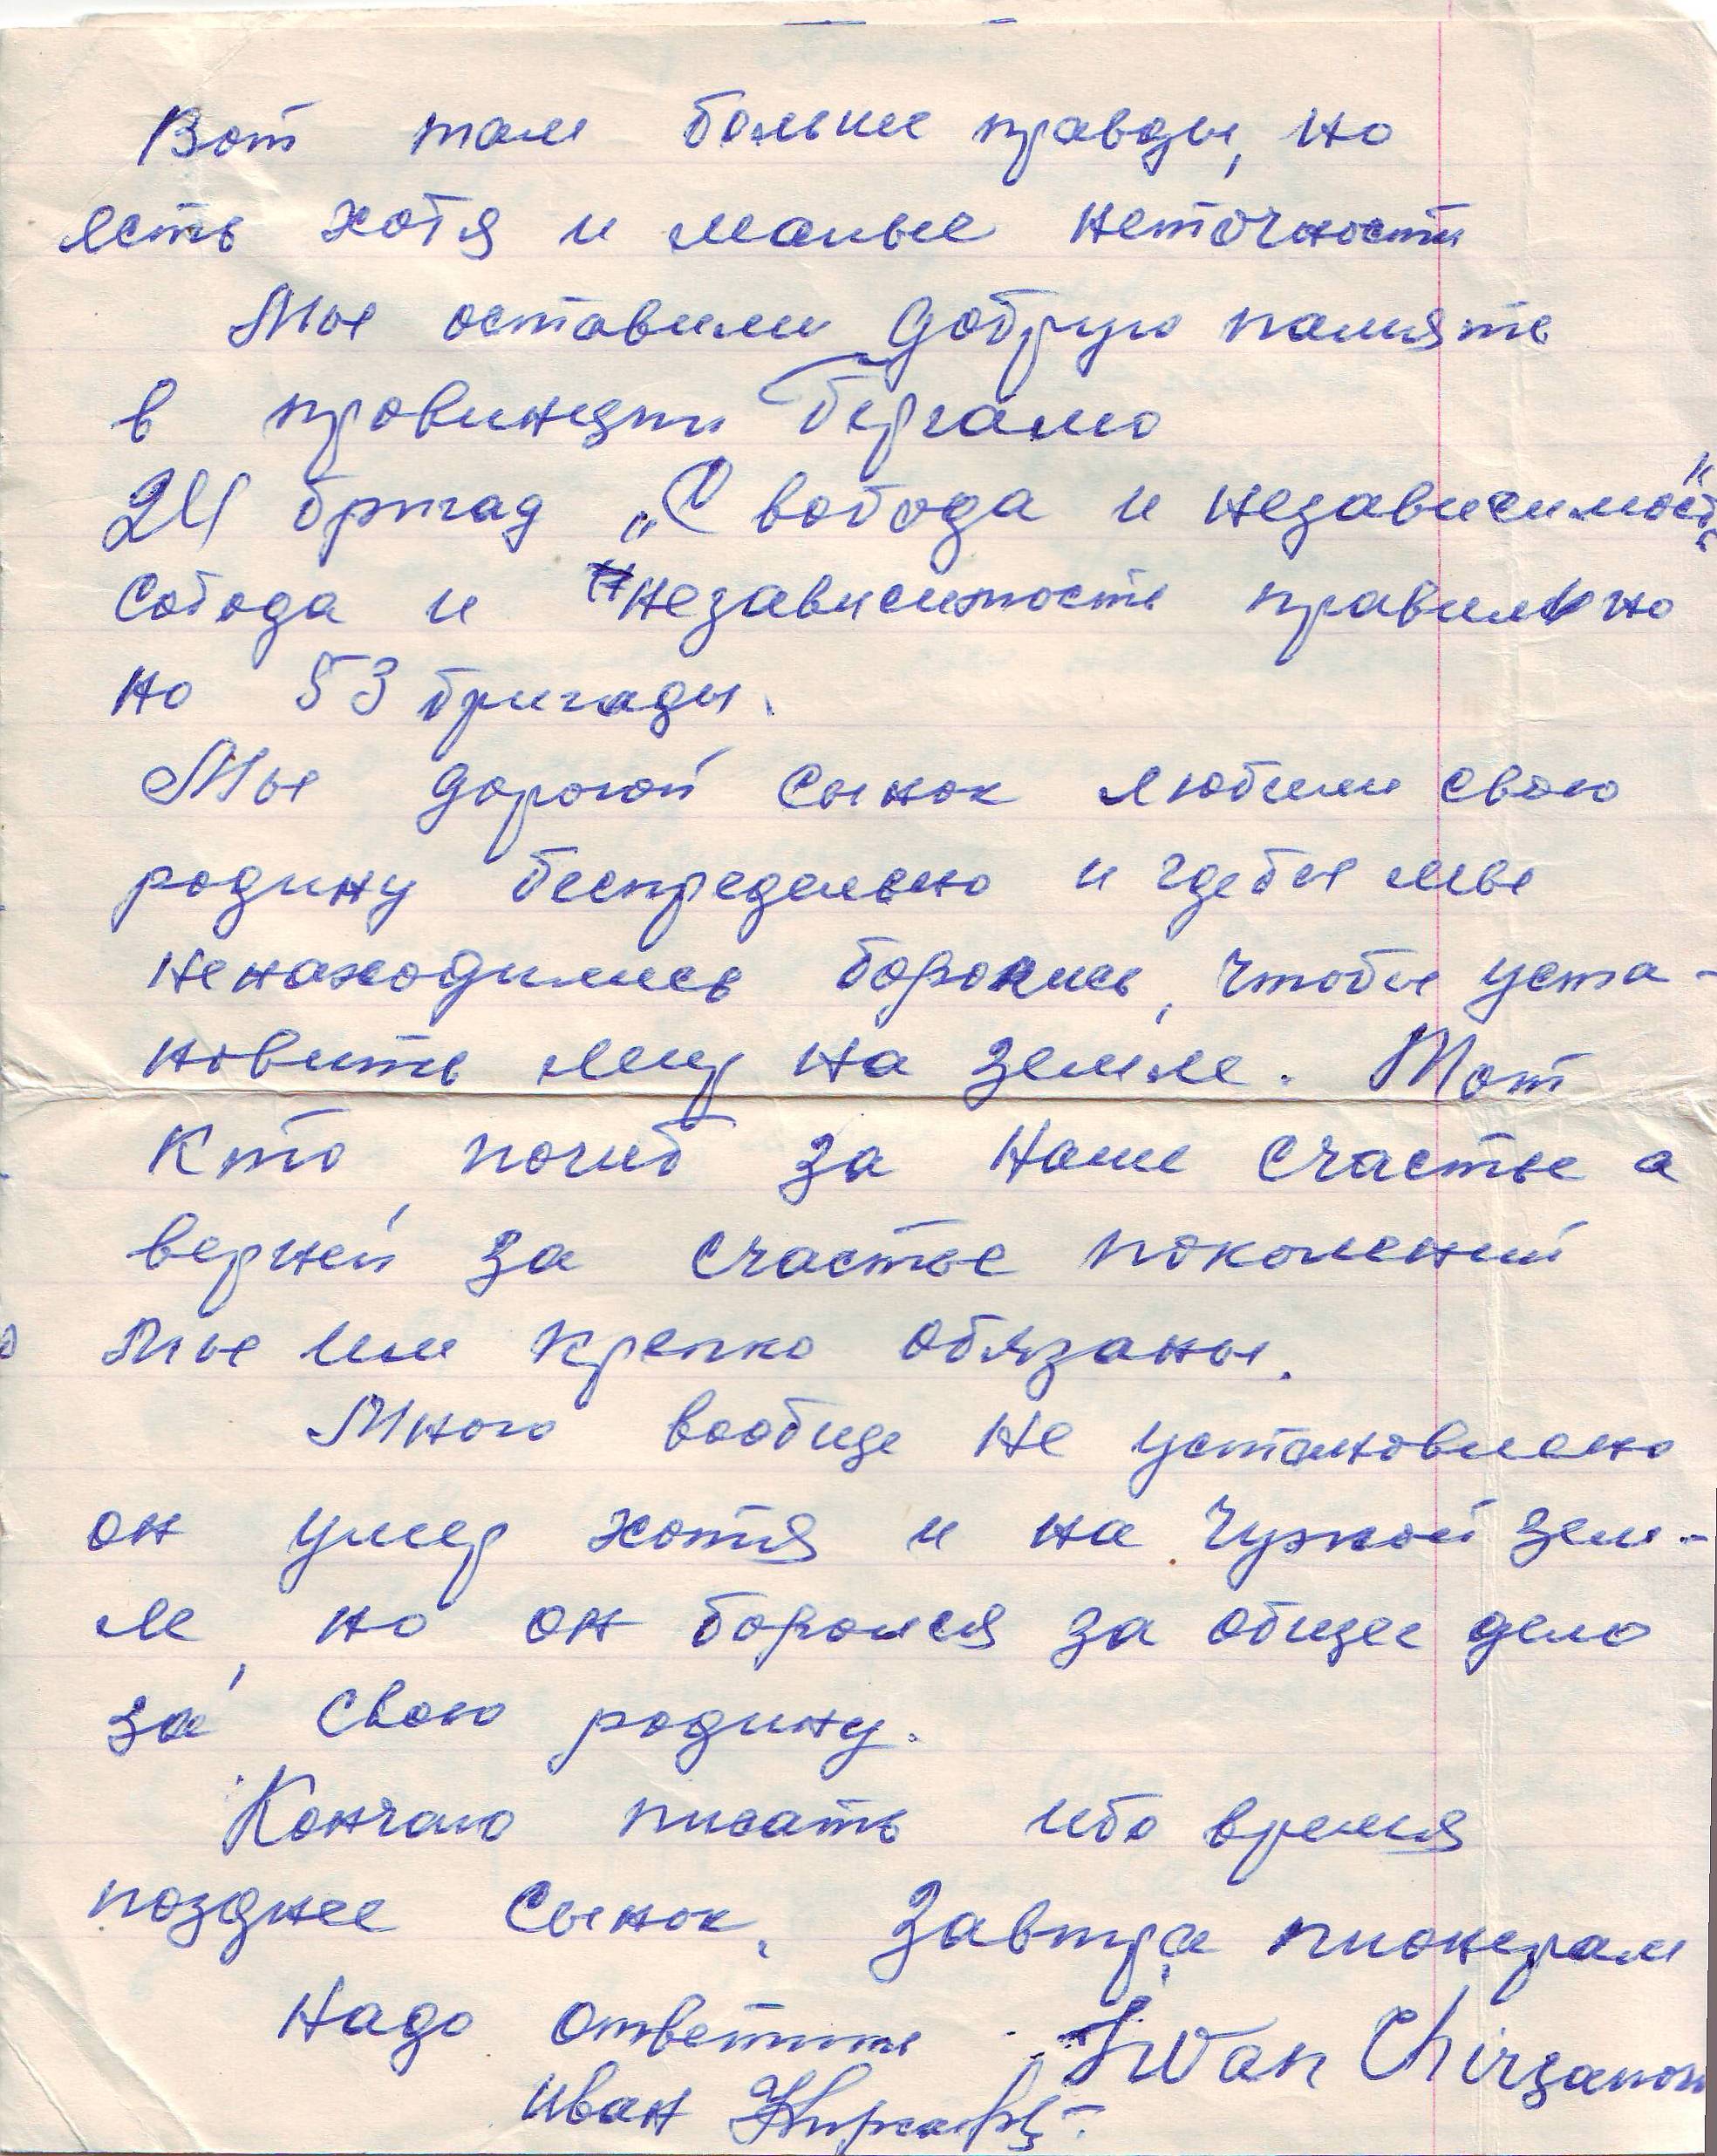 Вот там больше правды, но
есть хотя и малые неточности
Мы оставили добрую память
в провинции Бергамо
24 бригад „Свобода и независимость"
Собода и независимость правильно
но 53 бригады.
Мы дорогой сынок любили свою
родину беспредельно и гдебы мы
ненаходились боролись, чтобы уста-
новить мир на земле. Тот
кто, погиб за наше счастье а
верней за счастье поколений
мы им крепко обязаны.
Много вообще не установлено
он умер хотя и на чужой зем-
ле, но он боролся за общее дело
за свою родину.
Кончаю писать ибо время
позднее сынок. Завтра пионерам
надо ответить. Iwan Chirsanow
Иван